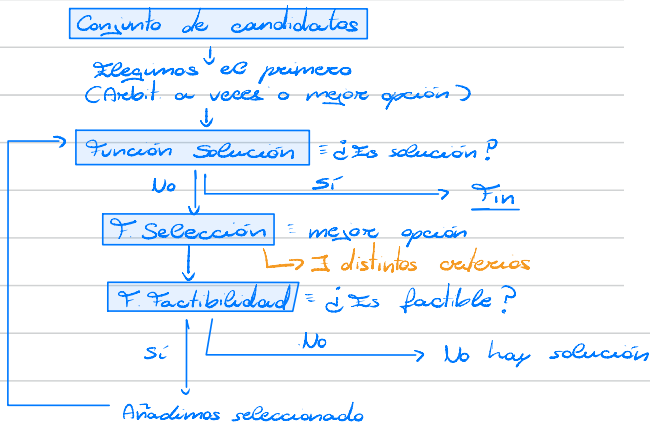 Conjunto de candidatos
Elegimos el primero
(Arbit a veces o mejor opción)
Función Solución ≡ ¿Es solución?
No
Sí
Fin
F. Selección ≡ mejor opción
∃ distintos criterios
F. Factibilidad ≡ ¿Es factible?
Sí
No
No hay solución
Añadimos seleccionado